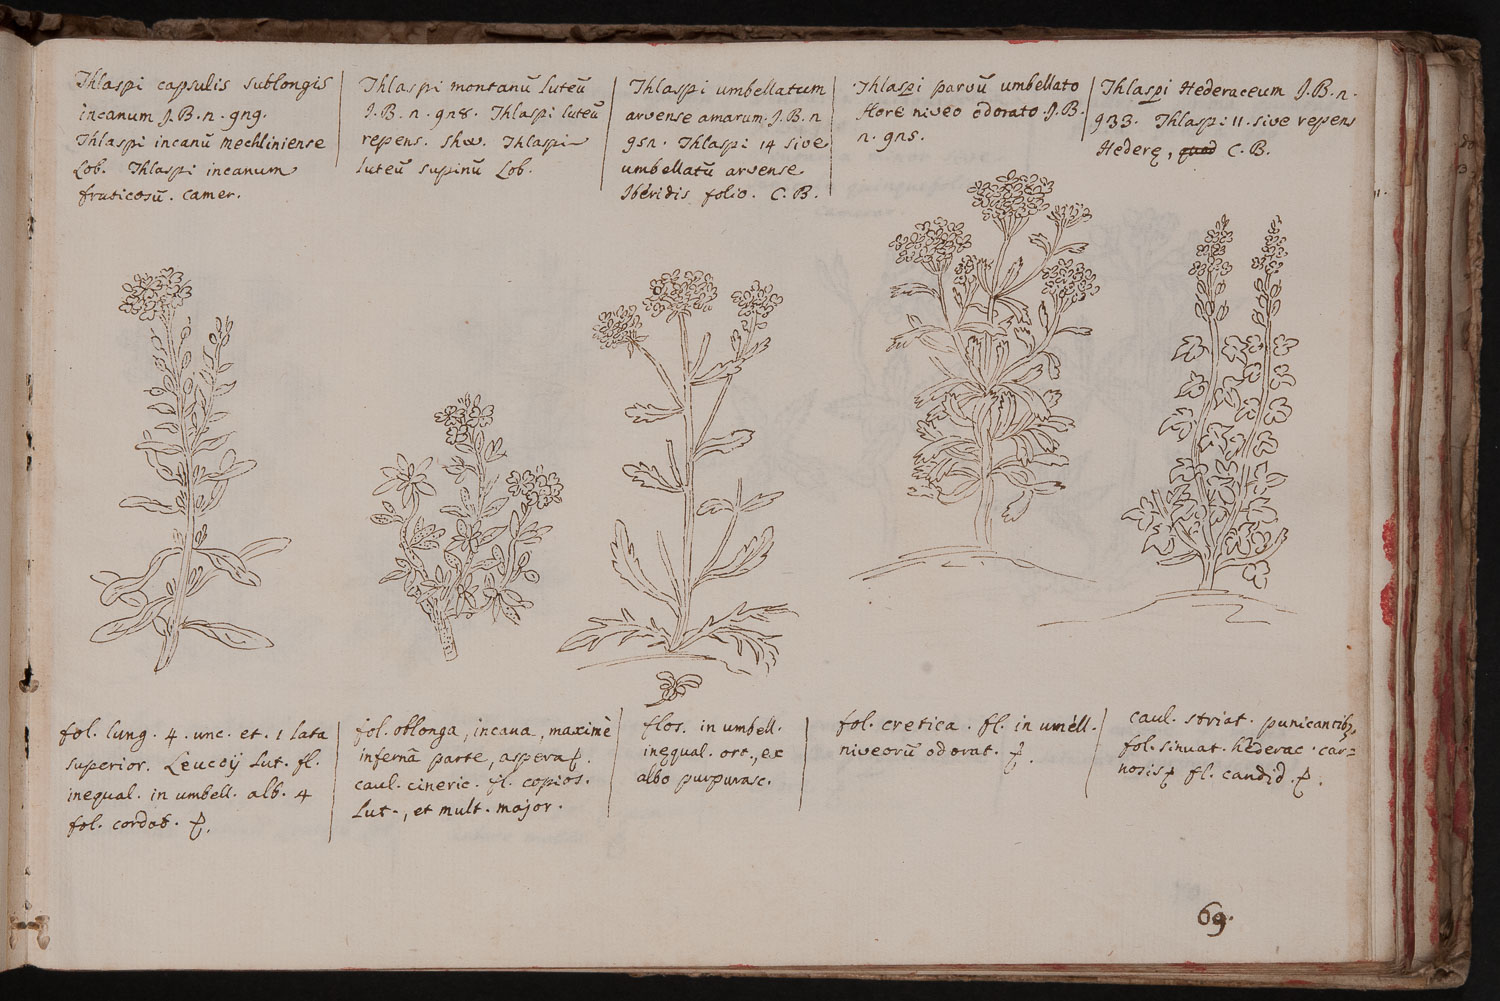 Thlaspi capsulis sublongis
incanum J.B. n. 929.
Thlaspi incanū mechliniense
Lob. Thlaspi incanum
fruticosū. Camer.
Thlaspi montanū luteū
J.B. n. 928. Thlaspi luteū
repens. Thlaspi
luteū supinū Lob.
Thlaspi umbellatum
arvense amarum. J.B. n
925. Thlaspi 14 sive
umbellatū arvense
Iberidis folio. C.B.
Thlaspi parvū umbellato
flore niveo odorato. J.B.
n. 925.
Thlaspi Hederaceum J.B. n.
933. Thlaspi 11. sive repens
Hederę, C.B.
fol. lung. 4. unc. et. 1 lata
superior. Leucoÿ Lut. fl.
inequal. in umbell. alb. 4
fol. cordat.
fol. oblonga, incana, maximè
infernā parte, aspera
caul. cineric. fl. copios.
Lut., et mult. major.
flos. in umbell.
inequal. ort., ex
albo purpurasc.
fol. cretica. fl. in umbell.
niveorū odorat.
caul. striat. punicantib,
fol. sinuat. hederac. car=
nosis fl. candid.
69.